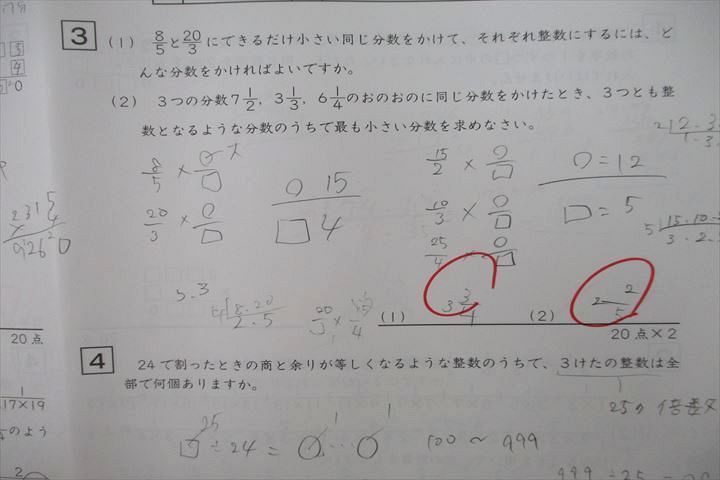 3
(1) 8/5と20/3にできるだけ小さい同じ分数をかけて、それぞれ整数にするには、ど
んな分数をかければよいですか。
(2) 3つの分数7 1/2, 3 1/3, 6 1/4のおのおのに同じ分数をかけたとき、3つとも整
数となるような分数のうちで最も小さい分数を求めなさい。
8/5 × ○/□
○ 15
20/3 × ○/□
□ 4
15/2 × ○/□
○=12
10/3 × ○/□
□=5
25/4 ○/□
2315
92620
5.3
8.20
2.5
20/3 × 15/4
(1) 3 3/4
(2) 2 2/5
20点
20点×2
4
24で割ったときの商と余りが等しくなるような整数のうちで、3けたの整数は全
部で何個ありますか。
25
□÷24=○…○
1 1
100～999
25の倍数
999÷25=
1
17×19
のよう
2